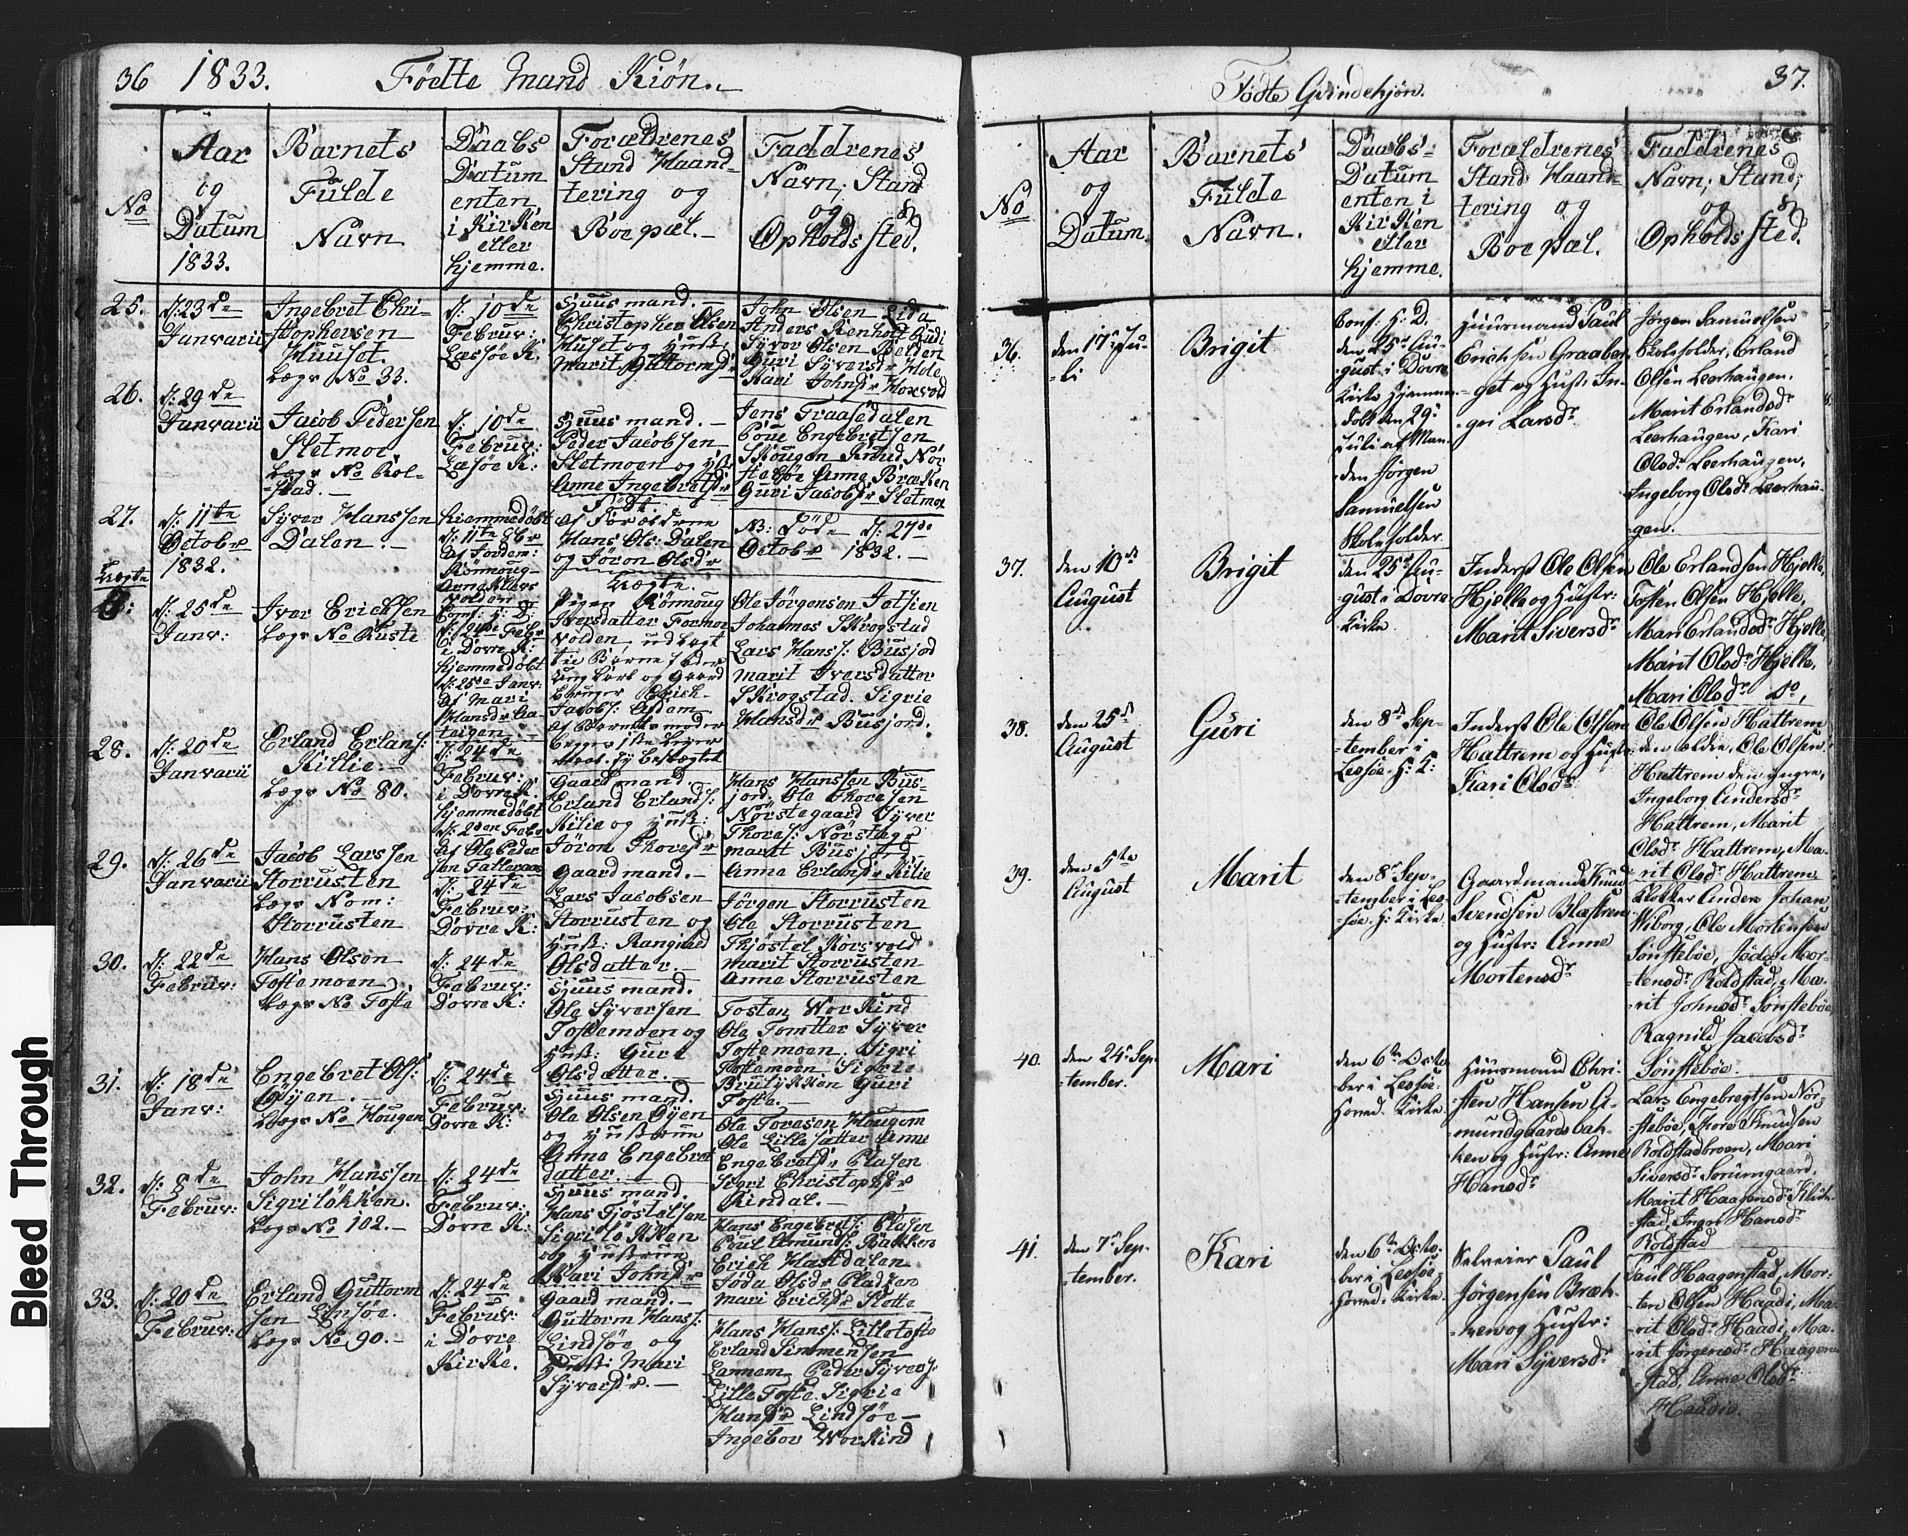 36 1833. Födte Mand Kiön.
No
Aar
og
Datum
1833.
Barnets
Fulde
Navn
Daabs
Datum
enten
i Kirken
eller
hjemme.
Forældrenes
Stand Haand-
tering og
Boepæl.
Faddrenes
Navn, Stand
og
Opholds sted.
25.
d: 23de
Janvarii
Ingebret Chri-
stophersen
Huuset.
Lægs No 33.
d: 10de
Februr:
Læssöe K.
Huusmand.
Christopher Olsen
Huset og Hust:
Marit Guttormsdr
John Olsen Lida
Sÿver Olsen
Guri Sÿversdr Hole
Kari Johnsdr
26.
d: 29de
Janvarii
Jacob Pedersen
Sletmoe
Lægs No Rol-
stad.
d: 10de
Februr:
Læsöe K:
Huusmand.
Peder Jacobsen
Sletmoen og Hst:
Anne Ingebretsdr
Jens Traasedalen
Poue Engebretsen
Skougen Knud Nör
steböe Anne Bræken
Guri Jacobsdr Sletmoe
27.
d: 11te
Octobr
1832.
Sÿver Hanssen
Dalen.
Hiemmedöbt
d: 11te 8br
Födt
af Foreldrene
Hans Ols: Dalen
og Jöron Olsdr
NB: Föde d: 27de
Octobr 1832.
Uægte
d: 25de
Janv:
Iver Erichsen
Lægs No Ruste
Conf: H: D:
d: 24de Febr
i Dovre K:
Hjemmedöbt
d: 25de Janv:
af Mari
Hansdr
Uægte.
Pigen Römoug
Iversdatter Formo
volden
Erich
Jacobs:
Ole Jörgensen
Johannes Skrogstad
Lars Hanss: Busjord
Marit Iversdatter
Skrogstad. Sigrie
Hansdr Busjord.
28.
d: 20de
Janvarii
Erland Erlans:
Killie.
Lægs No 80.
d: 24de
Februr:
i Dovre K.
Hjemmedöbt
d: 2den Febr
af Ole Peder
sen
Gaardmand.
Erland Erlands:
Kilie og Hust:
Jöron Thoresdr
Hans Hanssen Bus-
jord. Ole Thoresen
Nörstegaard Sÿver
Thores: Nörstegr
Marit Busjord
Anne Erlansdr Kilie
29.
d: 26de
Janvarii
Jacob Larssen
Storrusten
Lægs Nom:
Storrusten
d: 24de
Februr:
Dovre K:
Gaardmand.
Lars Jacobsen
Storrusten og
Hust: Rangnild
Olsdatter.
Jörgen Storrusten
Ole Storrusten
Thjöstel Korsvold
Marit Storrusten
Anne Storrusten
30.
d: 22de
Februr:
Hans Olsen
Toftemoen
Lægs No Tofte
d: 24de
Februr:
Dovre K:
Huusmand.
Ole Sÿversen
Toftemoen og
Hust: Guri
Olsdatter.
Tosten Workind
Ole Tomtter Sÿver
Toftemoen. Sigri
Toftemoen. Sigrie
Guri
Tofte.
31.
d: 18de
Janv:
Engebret Ols:
Öÿen.
Lægs No Hougen
d: 24de
Februr:
Dovre K:
Huusmand.
Ole Olsen Öÿen
og Hustrue
Anne Engebret
datter.
Ole Toresen Hougom
Ole Lille sætter Anne
Engebretsdr Plasen
Sigri Christophsdr
Rindal.
32.
d: 8de
Februr:
John Hanssen
Sigrilökken.
Lægs No 102.
d: 24de
Februr:
Dovre K:
Huusmand.
Hans Tjöstelsen
Sigrilökken
og Hustrue
Kari Johnsdr
Hans Engebrets: Plasen
Poul Amunds: Bakken
Erich Hastdalen
Jöda Olsdr Pladsen
Mari Erichsdr Slotte
33.
d: 20de
Februr:
Erland Guttorm
sen Linsöe.
Lægs No. 90.
d: 24de
Februr:
i Dovre
Kirke.
Gaardmand.
Guttorm Hans:
Lindsöe og
Hust: Mari
Sÿversdr.
Hans Hans: Lilletofte
Erland Simmensen
Lannem Peder Sÿvers:
Lille Tofte. Sigrie
Hansdr Lindsöe
Ingebor Workind
Födte Qvindekjön. 37.
No
Aar
og
Datum.
Barnets
Fulde
Navn.
Daabs-
Datum
enten i
Kirken
eller
hjemme.
Forældrenes
Stand Haand-
tering og
Boepæl.
Faddrenes
Navn, Stand,
og
Opholds sted.
36.
den 17de Ju-
li
Brigit
Conf: H: D.
den 25de Au-
gust i Dovre
Kirke Hjemme-
döbt den 29de
Juli af Man-
den Jörgen
Samuelsen
Skoleholder.
Huusmand Paul
Erichsen Graaber-
-get og Hustr: In-
-ger Larsdr
Jörgen Samuelsen
Skoleholder, Erland
Olsen Leerhaugen,
Marit Erlandsdr
Leerhaugen, Kari
Olsdr Leerhaugen,
Ingeborg Olsdr Leerhau-
gen.
37.
den 10de
August
Brigit
den 25de Au-
gust i Dovre
Kirke
Inderst Ole Olsen
Hjelle og Hustr:
Marit Siversdr
Ole Erlandsen Hjelle,
Tosten Olsen Hjelle,
Mari Erlandsdr Hjelle,
Marit Olsdr Hjelle,
Mari Olsdr Do,
38.
den 25de
August
Guri
den 8de Sep-
-tember i
Lessöe H: K:
Inderst Ole Olsen
Hattrem og Hustr:
Kari Olsdr
Ole Olsen Hattrem
den ældre, Ole Olsen
Hattrem den yngre,
Ingeborg Andersdr
Hattrem, Marit
Olsdr Hattrem, Ma-
rit Olsdr Hattrem
39.
den 5te
August
Marit
den 8de Sep-
-tember i Les-
söe H: Kirke.
Gaardmand Knud
Svendsen Blæstren
og Hustr: Anne
Mortensdr
Klokker Anders Johan
Wiborg, Ole Mortensen
Sönsteböe, Jöda Mor-
-tensdr Roldstad, Ma-
-rit Johnsdr Sönsteböe
Ragnild Jacobsdr
Sönsteböe.
40.
den 24de Sep-
-tember.
Mari
den 6te Octo-
ber i Lessöe
Hoved Kirke.
Huusmand Chri-
sten Hansen A-
-mundgaardsbak-
ken og Hustr: Anne
Hansdr
Lars Engebregtsen Nör-
steböe, Thore Knudsen
Roldstadbroen, Mari
Siversdr Sörumgaard,
Marit Haagensdr Kluk-
-stad, Inger Hansdr
Roldstad
41.
den 7de Sep-
-tember.
Kari
den 6te Octo-
ber i Lessöe
Hoved Kirke.
Selveier Paul
Jörgensen Bræk-
-ken og Hustr:
Mari Syversdr
Paul Haagenstad, Mor-
ten Olsen Haadi, Ma-
-rit Olsdr Haadi, Ma-
-rit Jörgensdr Haagen-
-stad, Anne Olsdr
Haadie.
Bleed Through